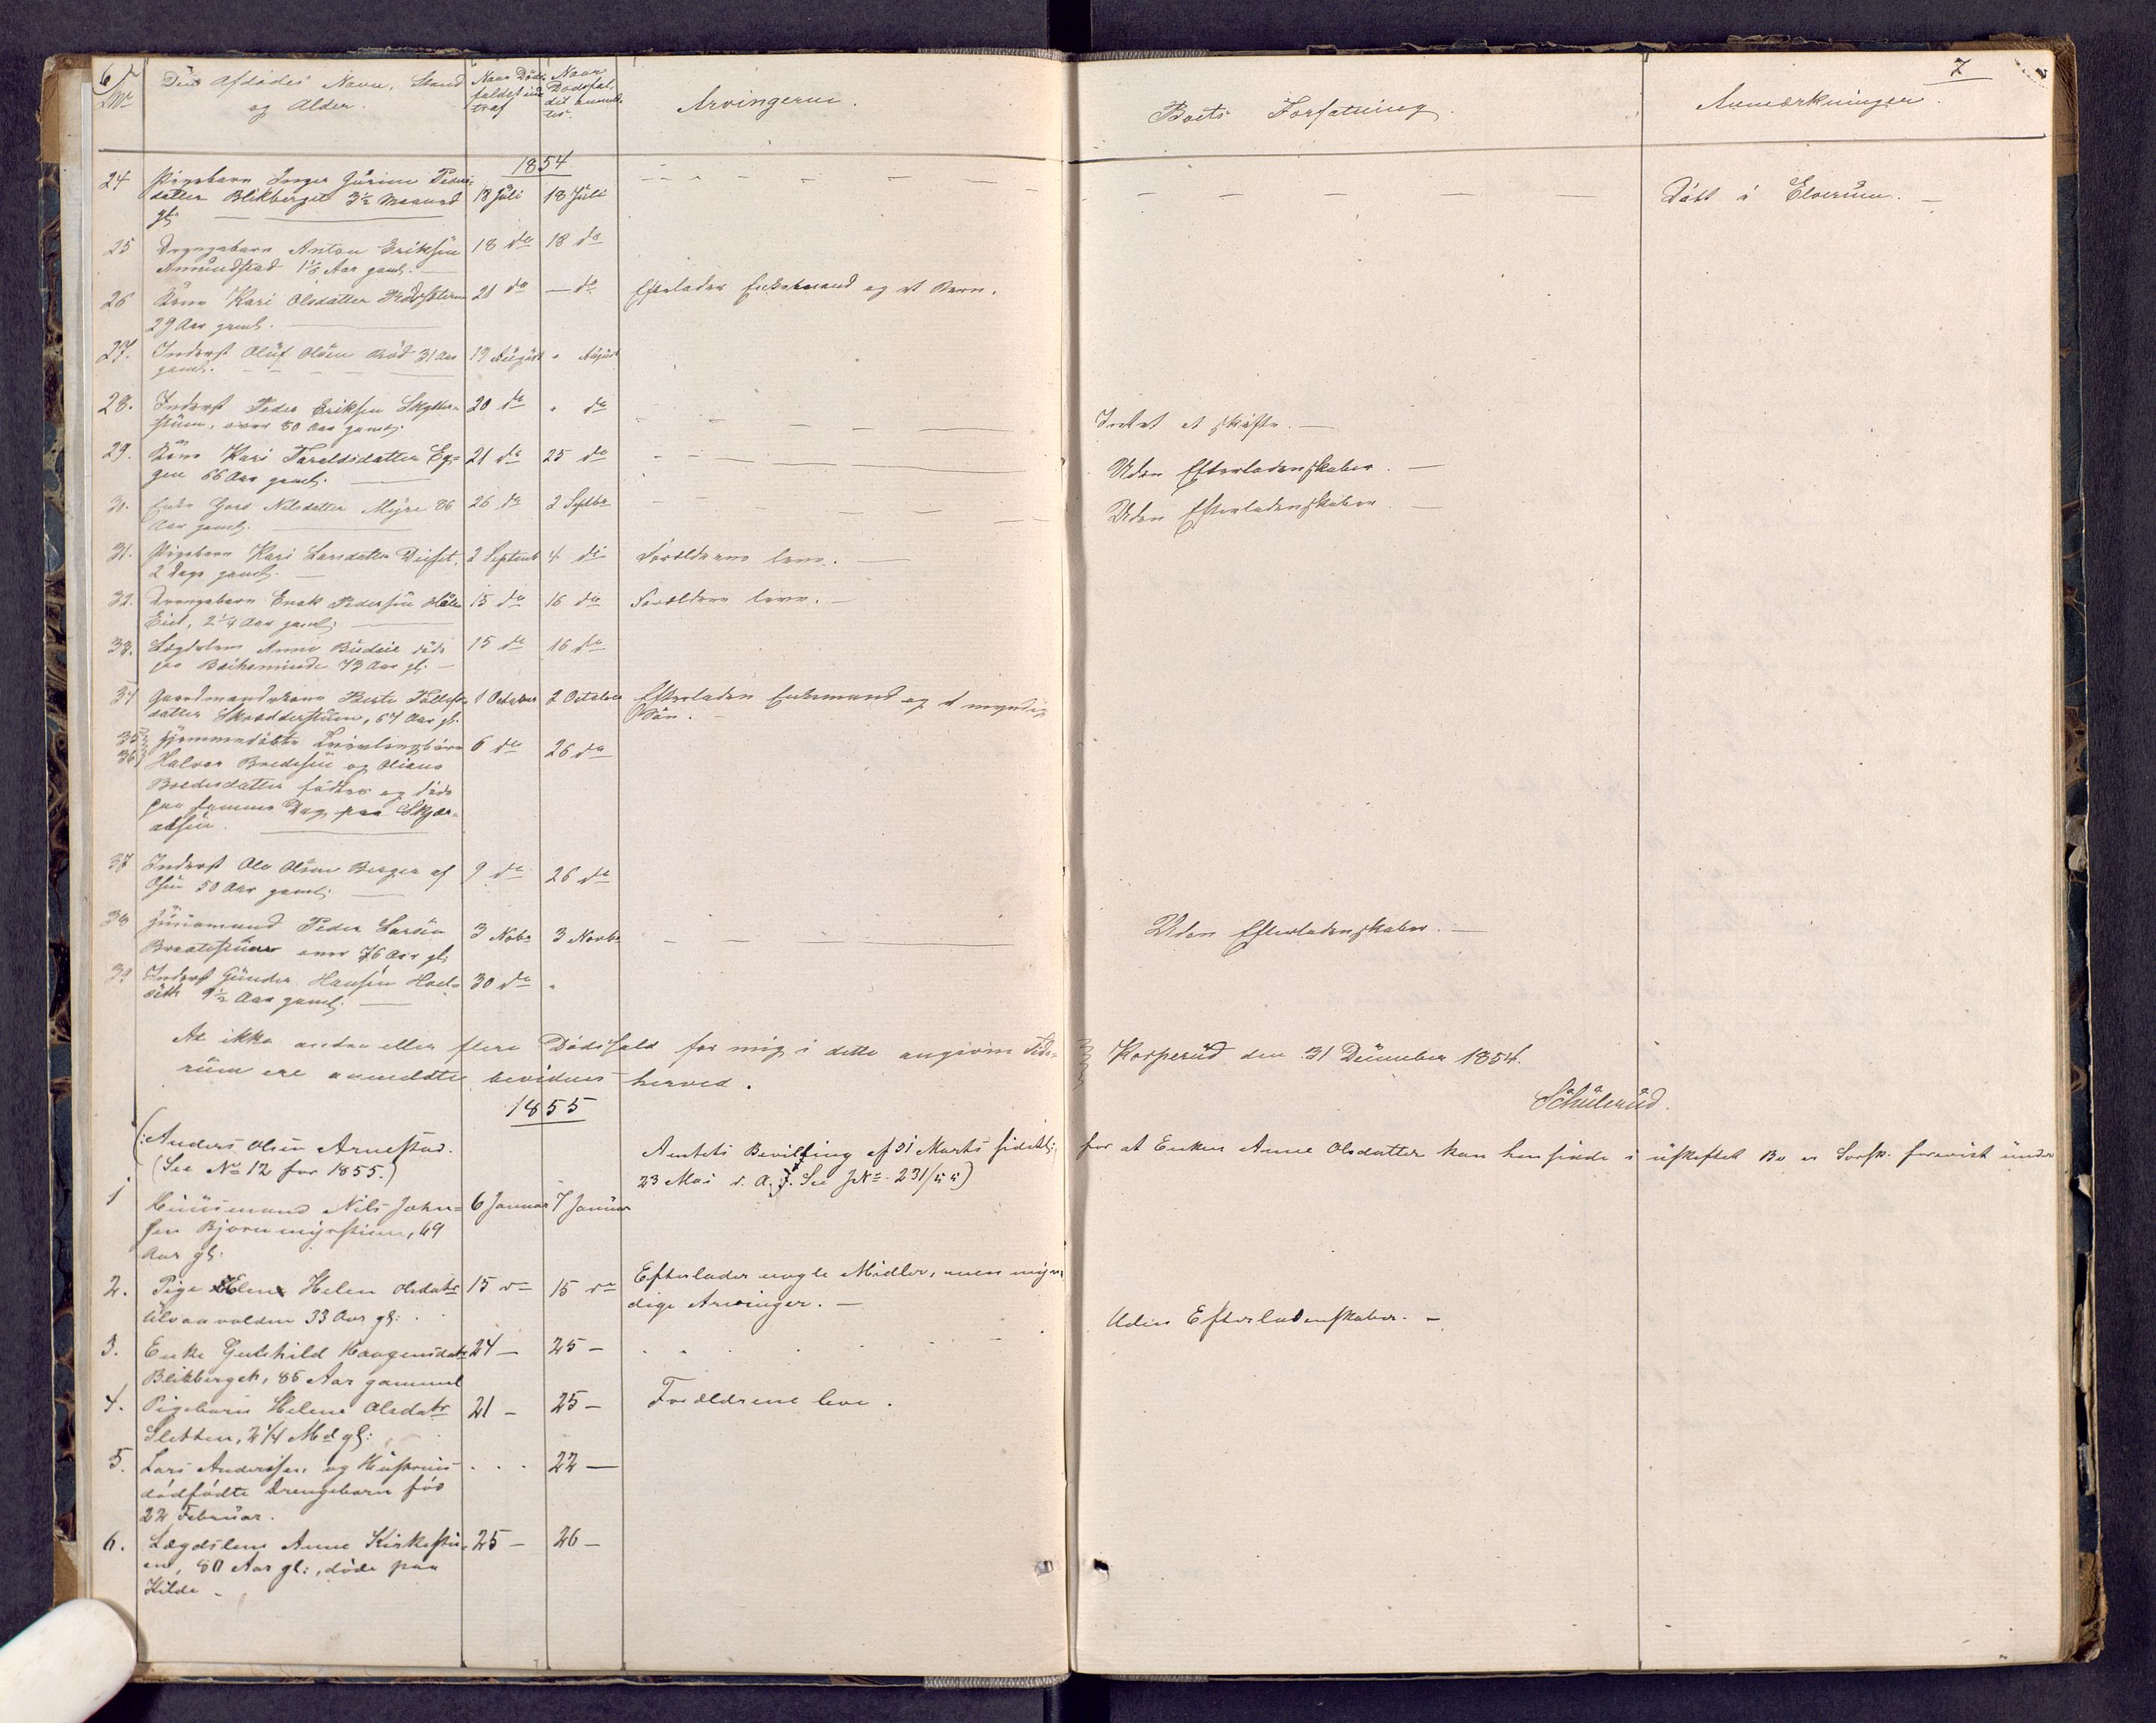 6
No
Den Afdødes Navn, Stand
og Alder.
Naar Døds
faldet ind
traf
Naar
Dødsfal
det anmeld
tes.
Arvingerne.
Boets Forfatning
7
Anmærkninger.
1854
24 Pigebarn Inger Gurine Peders
datter Blikberget 3½ Maaned 18 Juli 18 Juli
gl.
Død i Elverum.
25 Drengebarn Anton Eriksen 18 do 18 do
Amundstad 1⅙ Aar gaml.
26 Kone Kari Olsdatter 21 do — do Efterlader Enkemand og et Barn.
29 Aar gaml.
27. Inderst Oluf Olsen 31 Aar 19 August " August
gaml.
28. Inderst Peder Eriksen Skytter= 20 do " do
stuen, over 80 Aar gaml.
Intet at skifte.
29. Kone Kari Taraldsdatter Eg= 21 do 25 do
gen 66 Aar gaml.
Uden Efterladenskaber.
30. Enke Goro Nilsdatter Myre 86 26 do 2 Septbr
Aar gaml.
Uden Efterladenskaber
31. Pigebarn Kari Larsdatter Diset, 2 Septemb 4 do Forældrene leve.
2 Dage gaml.
32. Drengebarn Enok Pedersen 15 do 16 do Forældrene leve.
Eid, 2¼ Aar gaml.
33. Lægdslem Anne døde 15 do 16 do
paa 73 Aar gl.
34 Gaardmandskone Berte
datter Skrædderstuen, 67 Aar gl. 1 October 2 October Efterlader Enkemand og 1 myndig
Søn.
35
36
hjemmedøbte Tvillingbørn 6 do 26 do
Halvor Bredesen og Oliane
Bredesdatter fødte og døde
paa samme Dag paa Skjær=
aasen.
37 Inderst Ole Olsen Berger af 9 do 26 do
Osen 50 Aar gaml.
38 Huusmand Peder Larsen 3 Nobr 3 Novbr
Braatestuen over 76 Aar gl.
Uden Efterladenskaber.
39 Inderst Gunder Hansen 30 do "
9½ Aar gaml.
At ikke andre eller flere Dødsfald for mig i dette angivne Tids=
rum ere anmeldte bevidnes herved.
Korperud den 31 December 1854.
Schulerud.
1855
(: Anders Olsen Arnestad.
(See No 12 for 1855.)
Amtets Bevilling af 31 Marts
23 Mai d. A. See No 231/55)
for at Enken Anne Olsdatter kan hensidde i uskiftet Bo er forevist under
1 Huusmand Nils John= 6 Januar 7 Januar
sen Bjørnmyrstuen, 69
Aar gl:
2. Pige Helen Olsdatr 15 do 15 do Efterlader nogle Midler, men myn
Ulvaavolden 33 Aar gl:
dige Arvinger. —
3. Enke Gulhild Haagensdatr 24 — 25 —
Blikberget, 85 Aar gammel
Uden Efterladenskaber. —
4. Pigebarn Helene Olsdatr 21 — 25 — Forældrene leve.
Sletten, 2 1/4 Md gl:
5. Lars Andersen og Hustrues . . . 22 —
dødfødte Drengebarn fød
22 Februar.
6. Lægdslem Anne Kirkestu= 25 — 26 —
en, 80 Aar gl:, døde paa
Kilde —